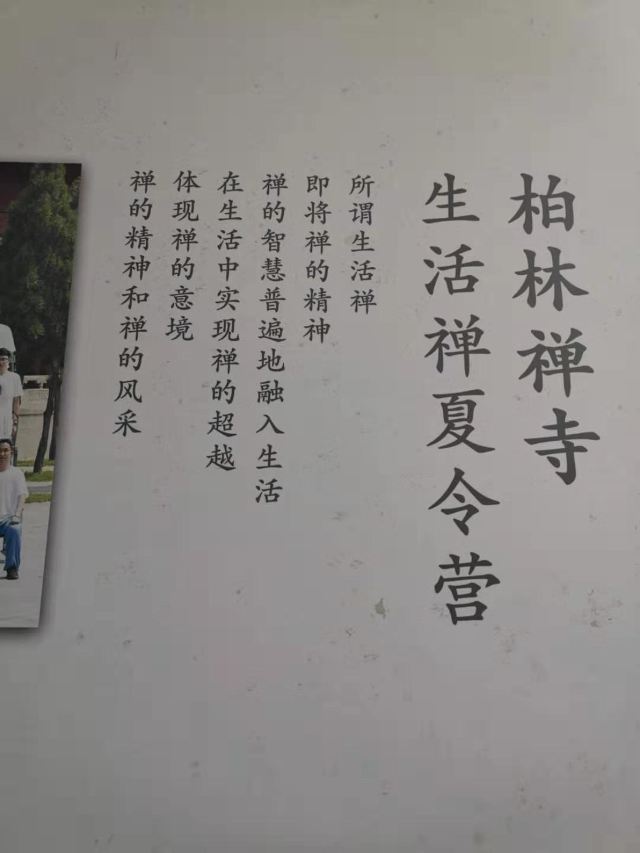 柏林禅寺
生活禅夏令营
所谓生活禅
即将禅的精神
禅的智慧普遍地融入生活
在生活中实现禅的超越
体现禅的意境
禅的精神和禅的风采